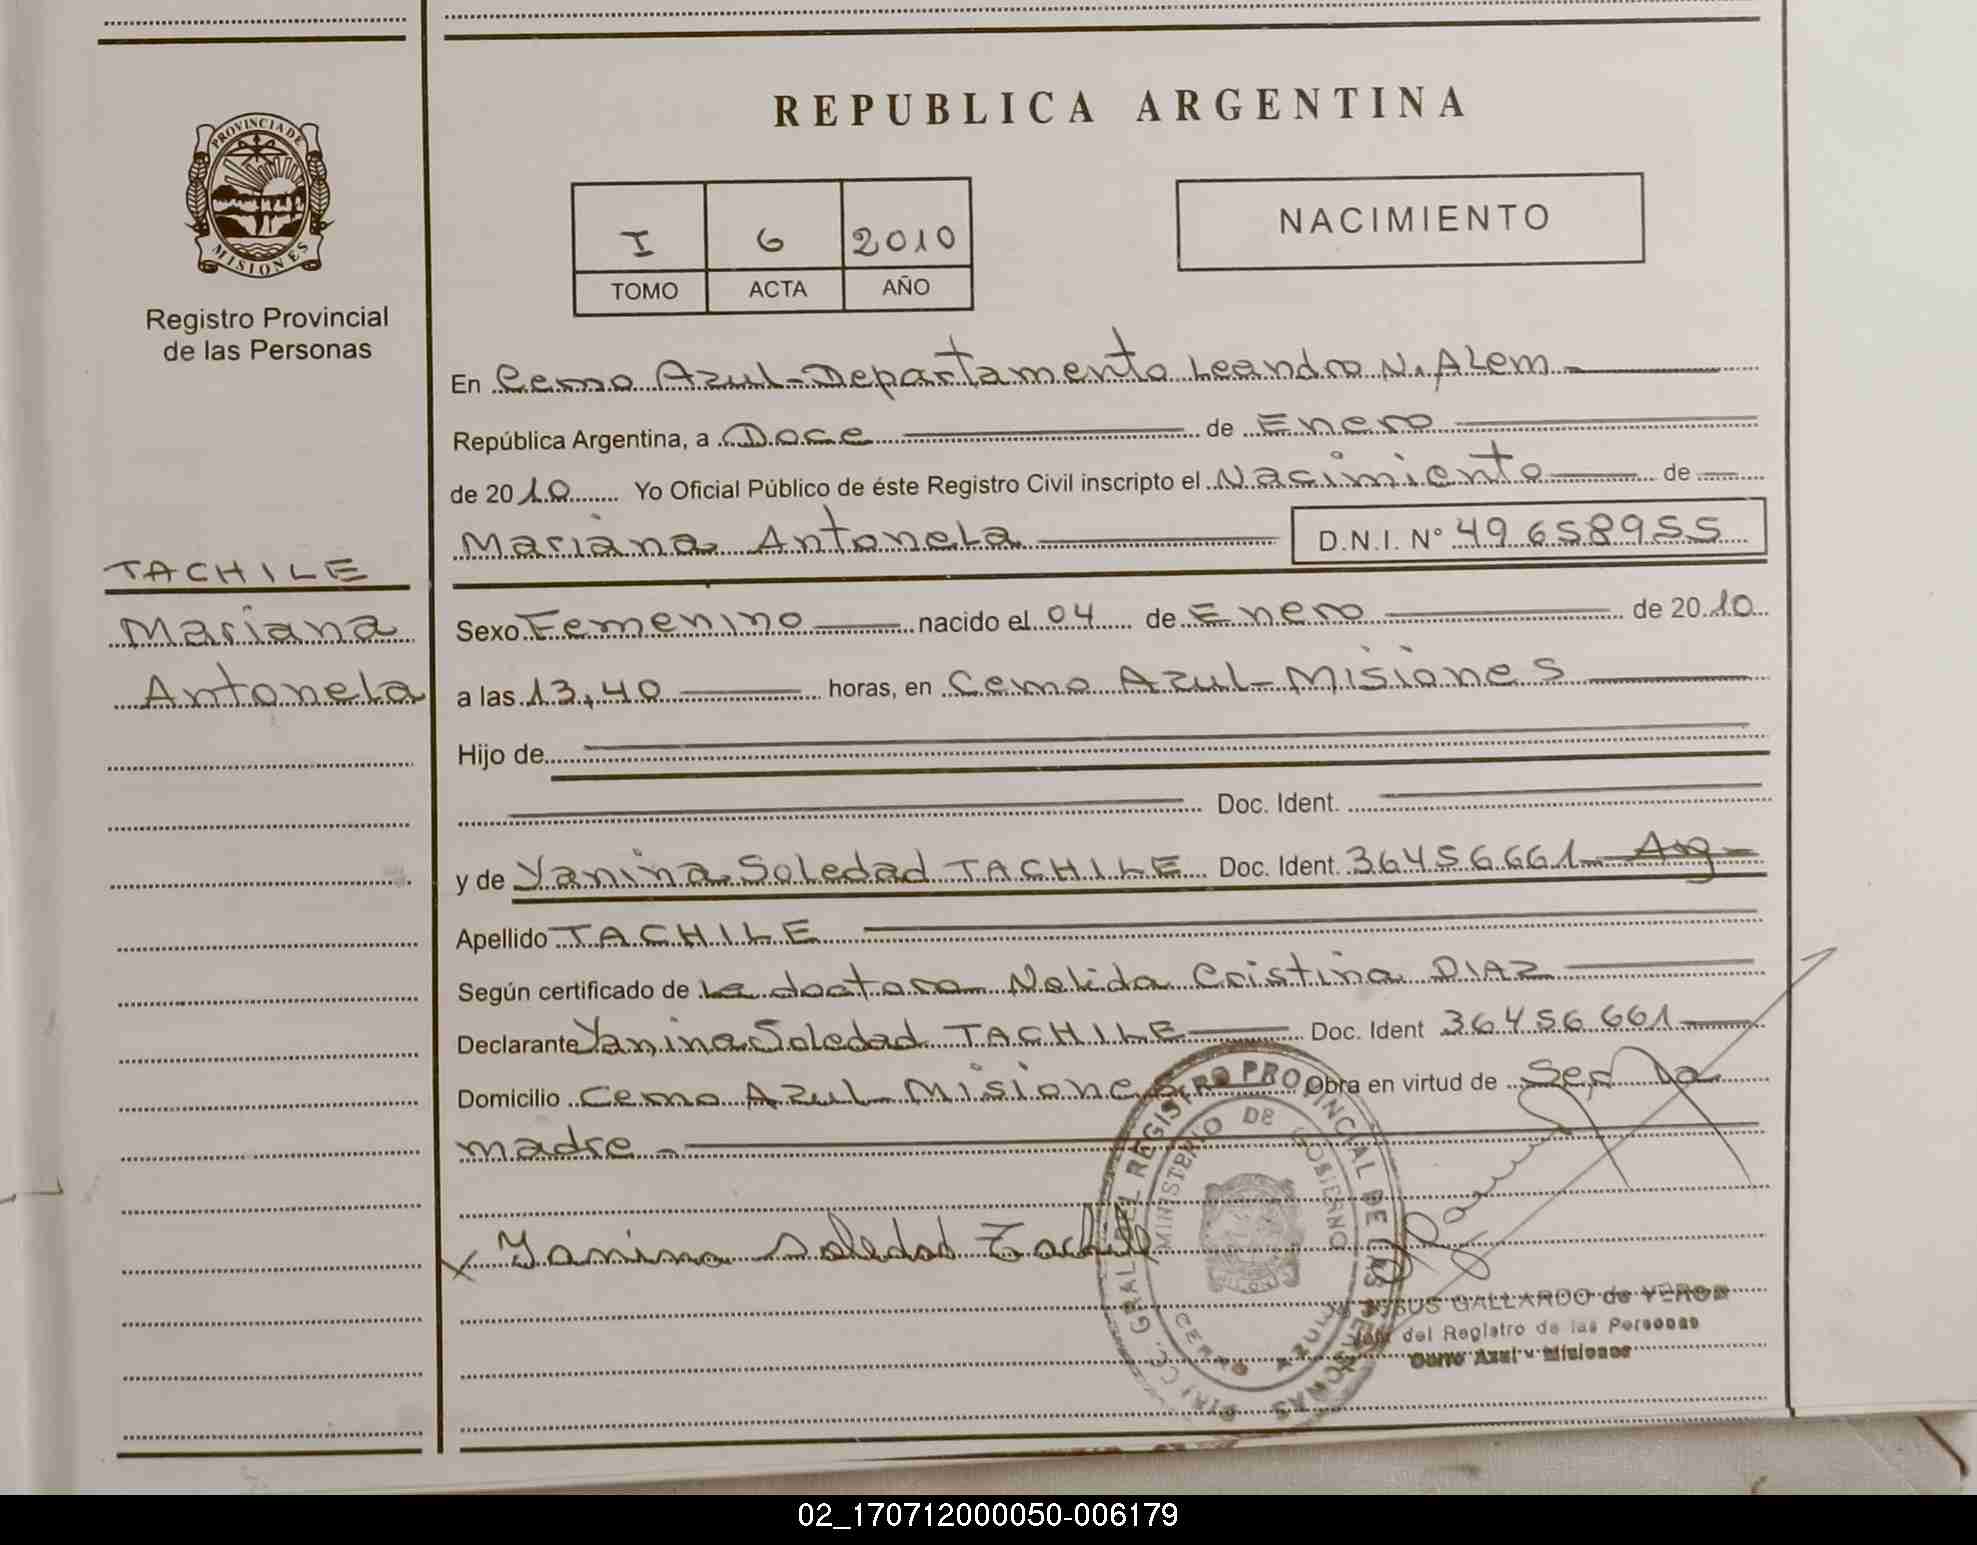 PROVINCIA DE
MISIONES
Registro Provincial
de las Personas
TACHILE
Mariana
Antonela
REPUBLICA ARGENTINA
I 6 2010
TOMO ACTA AÑO
NACIMIENTO
En Cerro Azul-Departamento Leandro N. Alem
República Argentina, a Doce de Enero
de 2010 Yo Oficial Público de éste Registro Civil inscripto el Nacimiento de
Mariana Antonela D.N.I. Nº 49658955
Sexo Femenino nacido el 04 de Enero de 2010
a las 13,40 horas, en Cerro Azul-Misiones
Hijo de
Doc. Ident.
y de Yanina Soledad TACHILE Doc. Ident. 36456661 Arg
Apellido TACHILE
Según certificado de La doctora Nelida Cristina DIAZ
Declarante Yanina Soledad TACHILE Doc. Ident 36456661
Domicilio Cerro Azul Misiones Obra en virtud de Ser la
madre
x Yanina Soledad Tachile
REGISTRO PROVINCIAL DE LAS PERSONAS
MINISTERIO DE GOBIERNO
CERRO AZUL
GALLARDO de YERON
Jefe del Registro de las Personas
Cerro Azul - Misiones
02_170712000050-006179